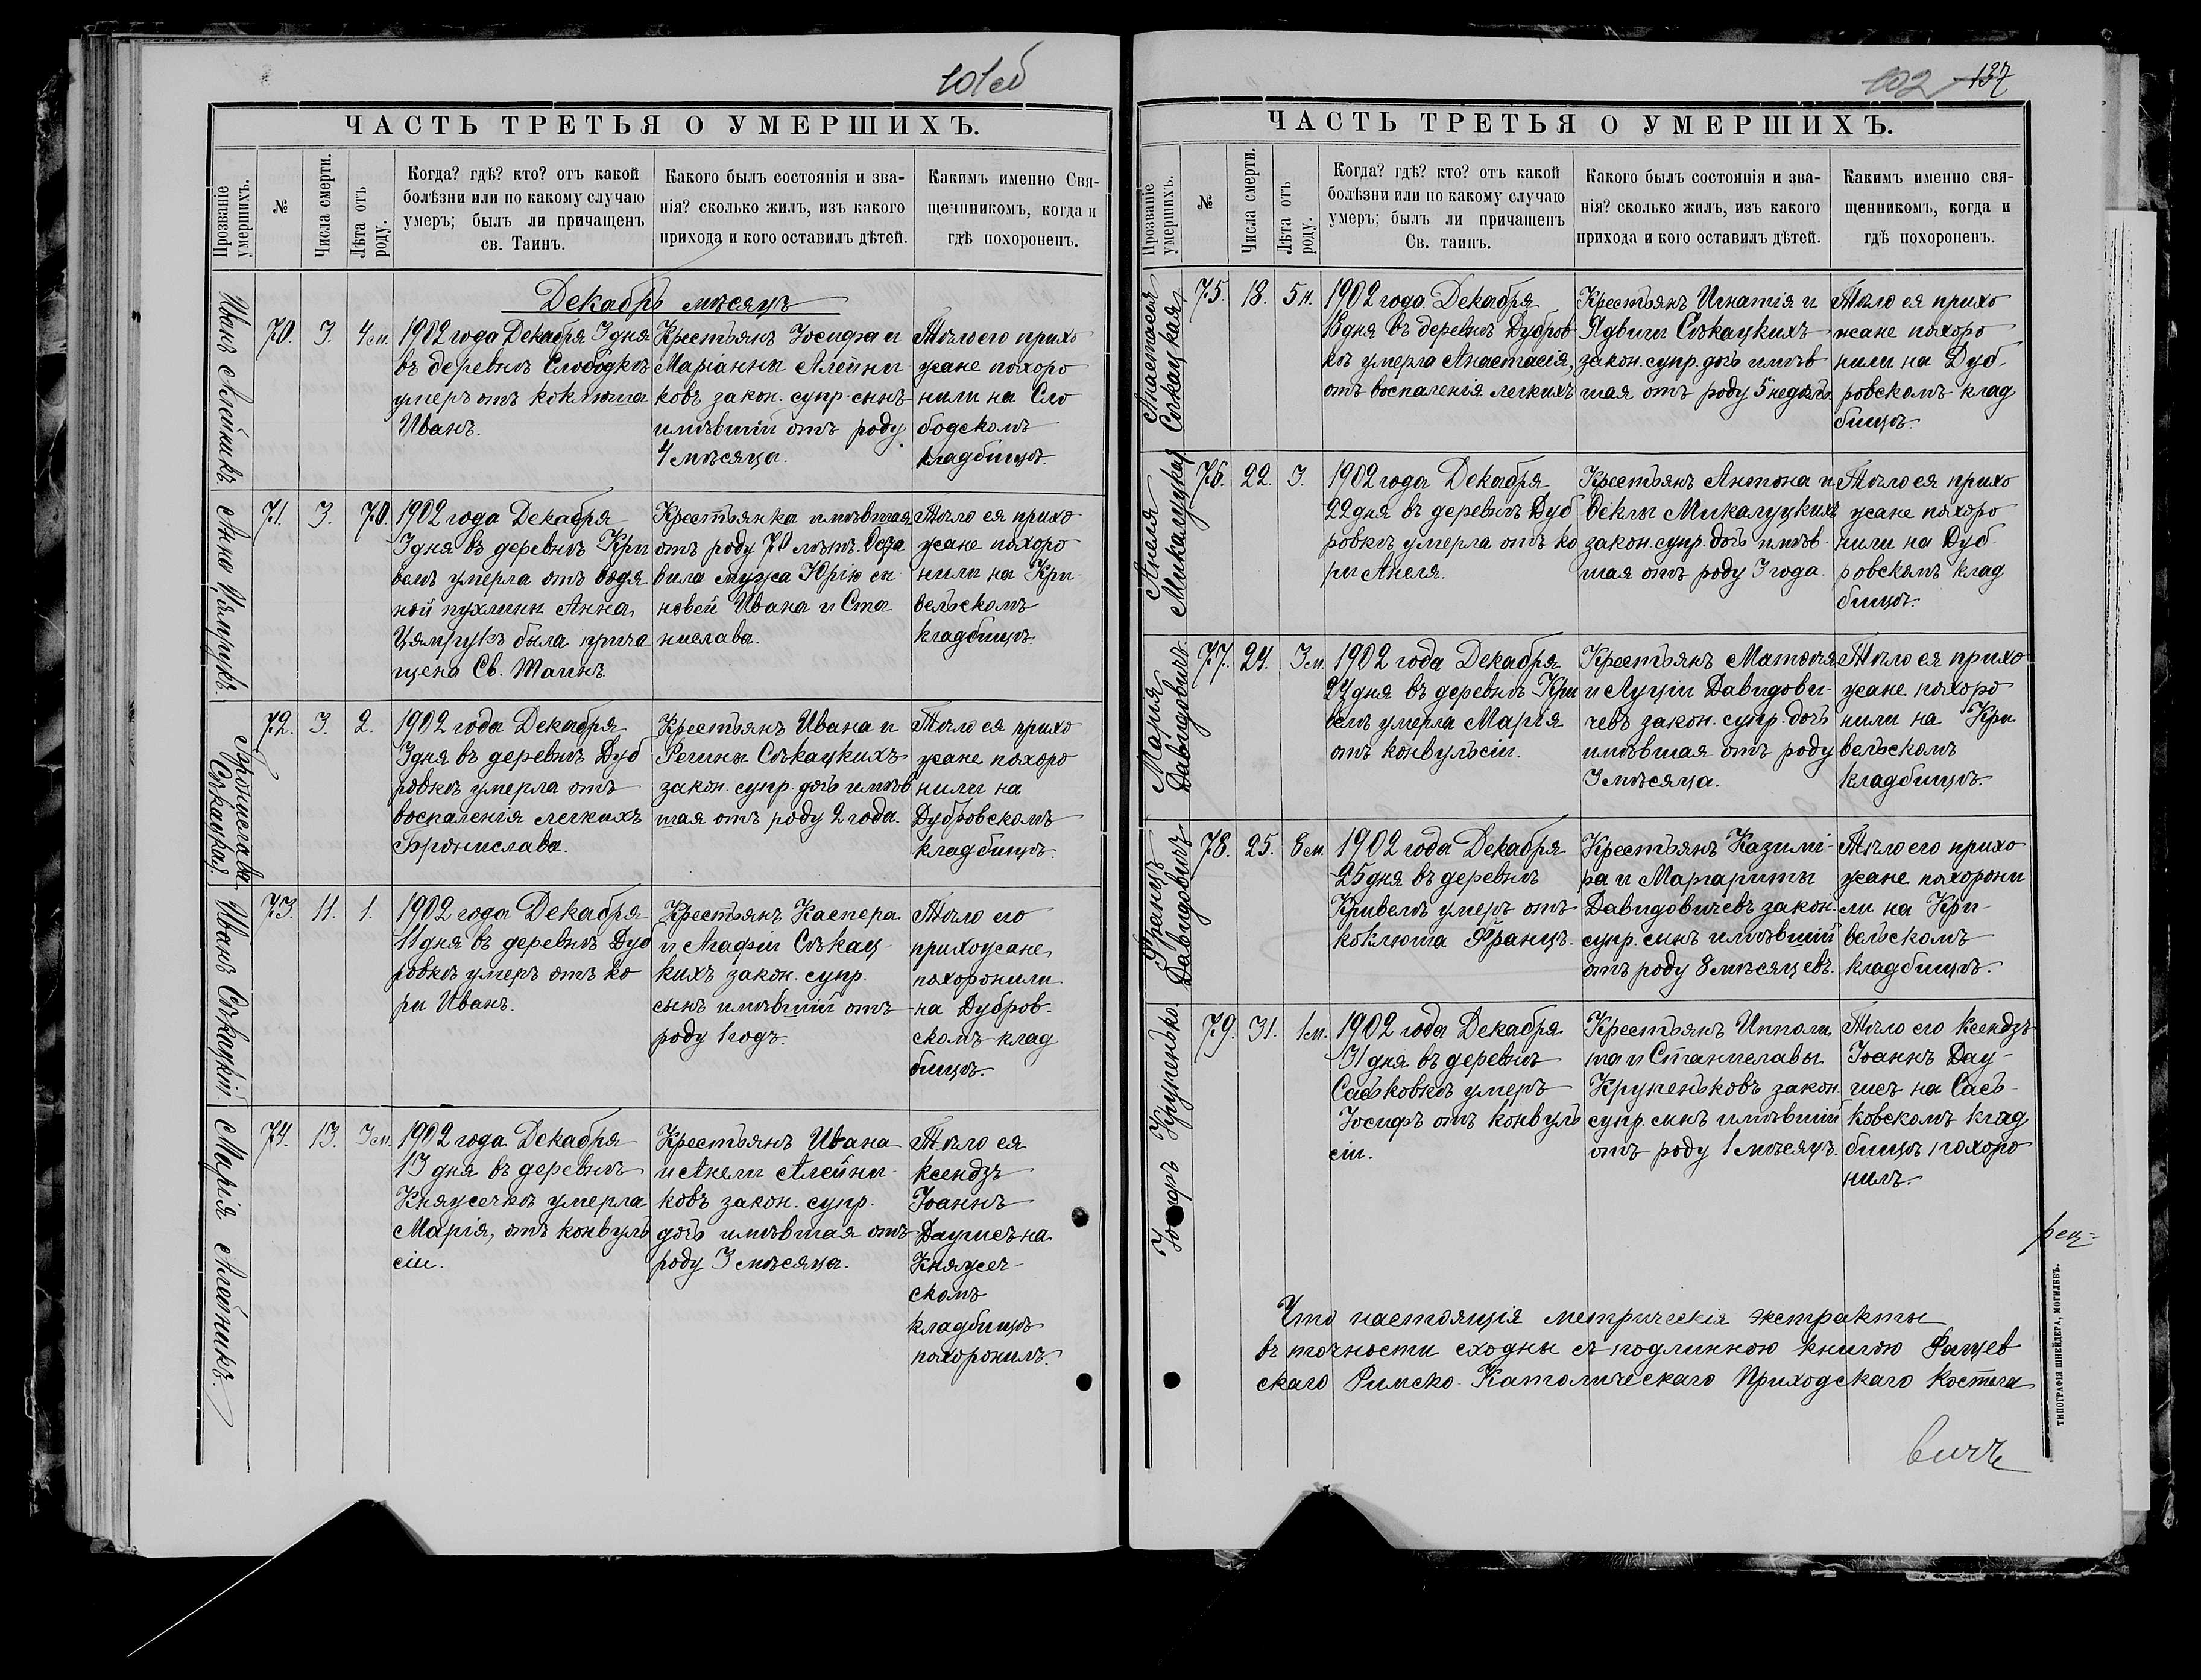 101об
ЧАСТЬ ТРЕТЬЯ О УМЕРШИХЪ.
Прозваніе умершихъ.
№
Числа смерти.
Лѣта отъ роду.
Когда? гдѣ? кто? отъ какой
болѣзни или по какому случаю
умеръ; былъ ли причащенъ
св. Таинъ.
Какого былъ состоянія и зва-
нія? сколько жилъ, изъ какого
прихода и кого оставилъ дѣтей.
Какимъ именно Свя-
щенникомъ, когда и
гдѣ похороненъ.
Декабрь мѣсяцъ
Иванъ Алейникъ
70.
3.
4 м.
1902 года Декабря 3 дня
въ деревнѣ Слободкѣ
умеръ отъ коклюша
Иванъ.
Крестьянъ Іосифа и
Маріанны Алейни
ковъ закон. супр. сынъ
имѣвшій отъ роду
4 мѣсяца.
Тѣло его прихо
жане похоро
нили на Сло
бодскомъ
кладбищѣ.
Анна Цямрукъ
71.
3.
70.
1902 года Декабря
3 дня въ деревнѣ Кри
велѣ умерла отъ водя
ной пухлины Анна
Цямрукъ была прича
щена Св. Таинъ.
Крестьянка имѣвшая
отъ роду 70 лѣтъ. Оста
вила мужа Юрію сы
новей Ивана и Ста
нислава.
Тѣло ея прихо
жане похоро
нили на Кри
вельскомъ
кладбищѣ.
Бронислава
Сѣкацкая.
72.
3.
2.
1902 года Декабря
3 дня въ деревнѣ Дуб
ровкѣ умерла отъ
воспаленія легкихъ
Бронислава.
Крестьянъ Ивана и
Регины Сѣкацкихъ
закон. супр. дочь имѣв
шая отъ роду 2 года.
Тѣло ея прихо
жане похоро
нили на
Дубровскомъ
кладбищѣ.
Иванъ Сѣкацкій
73.
11.
1.
1902 года Декабря
11 дня въ деревнѣ Дуб
ровкѣ умеръ отъ ко
ри Иванъ.
Крестьянъ Каспера
и Агафіи Сѣкац
кихъ закон. супр.
сынъ имѣвшій отъ
роду 1 годъ.
Тѣло его
прихожане
похоронили
на Дубров-
скомъ клад
бищѣ.
Марія Алейникъ.
74.
13.
3 м.
1902 года Декабря
13 дня въ деревнѣ
Княжечкѣ умерла
Марія, отъ конвуль
сіи.
Крестьянъ Ивана
и Анели Алейни
ковъ закон. супр.
дочь имѣвшая отъ
роду 3 мѣсяца.
Тѣло ея
ксендзъ
Іоаннъ
Даугисъ на
Княжеч-
скомъ
кладбищѣ
похоронилъ.
102
137
ЧАСТЬ ТРЕТЬЯ О УМЕРШИХЪ.
Прозваніе умершихъ.
№
Числа смерти.
Лѣта отъ роду.
Когда? гдѣ? кто? отъ какой
болѣзни или по какому случаю
умеръ; былъ ли причащенъ
Св. таинъ.
Какого былъ состоянія и зва-
нія? сколько жилъ, изъ какого
прихода и кого оставилъ дѣтей.
Какимъ именно свя-
щенникомъ, когда и
гдѣ похороненъ.
Анастасія
Сѣкацкая
75.
18.
5 н.
1902 года Декабря
18 дня въ деревнѣ Дубров
кѣ умерла Анастасія,
отъ воспаленія легкихъ
Крестьянъ Игнатія и
Ядвиги Сѣкацкихъ
закон. супр. дочь имѣв
шая отъ роду 5 недѣль.
Тѣло ея прихо
жане похоро
нили на Дуб-
ровскомъ клад
бищѣ.
Анеля
Микалуцкая
76.
22.
3.
1902 года Декабря
22 дня въ деревнѣ Дуб
ровкѣ умерла отъ ко
ри Анеля.
Крестьянъ Антона и
Ѳеклы Микалуцкихъ
закон. супр. дочь имѣв-
шая отъ роду 3 года.
Тѣло ея прихо
жане похоро
нили на Дуб
ровскомъ клад
бищѣ.
Марія
Давидовичъ.
77.
24.
3 м.
1902 года Декабря
24 дня въ деревнѣ Кри
велѣ умерла Марія
отъ конвульсіи.
Крестьянъ Матѳея
и Луціи Давидови-
чевъ закон. супр. дочь
имѣвшая отъ роду
3 мѣсяца.
Тѣло ея прихо
жане похоро
нили на Кри
вельскомъ
кладбищѣ.
Францъ
Давидовичъ
78.
25.
8 м.
1902 года Декабря
25 дня въ деревнѣ
Кривелѣ умеръ отъ
коклюша Францъ.
Крестьянъ Казимі-
ра и Маргариты
Давидовичевъ закон.
супр. сынъ имѣвшій
отъ роду 8 мѣсяцевъ.
Тѣло его прихо
жане похорони
ли на Кри-
вельскомъ
кладбищѣ.
Іосифъ Крупенько.
79.
31.
1 м.
1902 года Декабря
31 дня въ деревнѣ
Саськовкѣ умеръ
Іосифъ отъ конвуль
сіи.
Крестьянъ Ипполи
та и Станиславы
Крупеньковъ закон.
супр. сынъ имѣвшій
отъ роду 1 мѣсяцъ.
Тѣло его Ксендзъ
Іоаннъ Дау-
гисъ на Сась-
ковскомъ клад
бищѣ похоро
нилъ.
Что настоящія метрическія экстракты
въ точности сходны съ подлинною книгою Фащев
скаго Римско-Католическаго Приходскаго Костела
вичъ
ТИПОГРАФІЯ ШНЕЙДЕРА, МОГИЛЕВЪ.